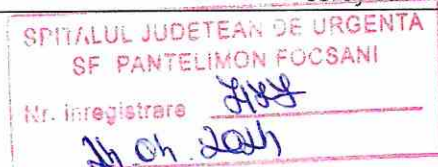 SPITALUL JUDETEAN DE URGENTA
SF PANTELIMON FOCSANI
Nr. inregistrare
24 04. 2024